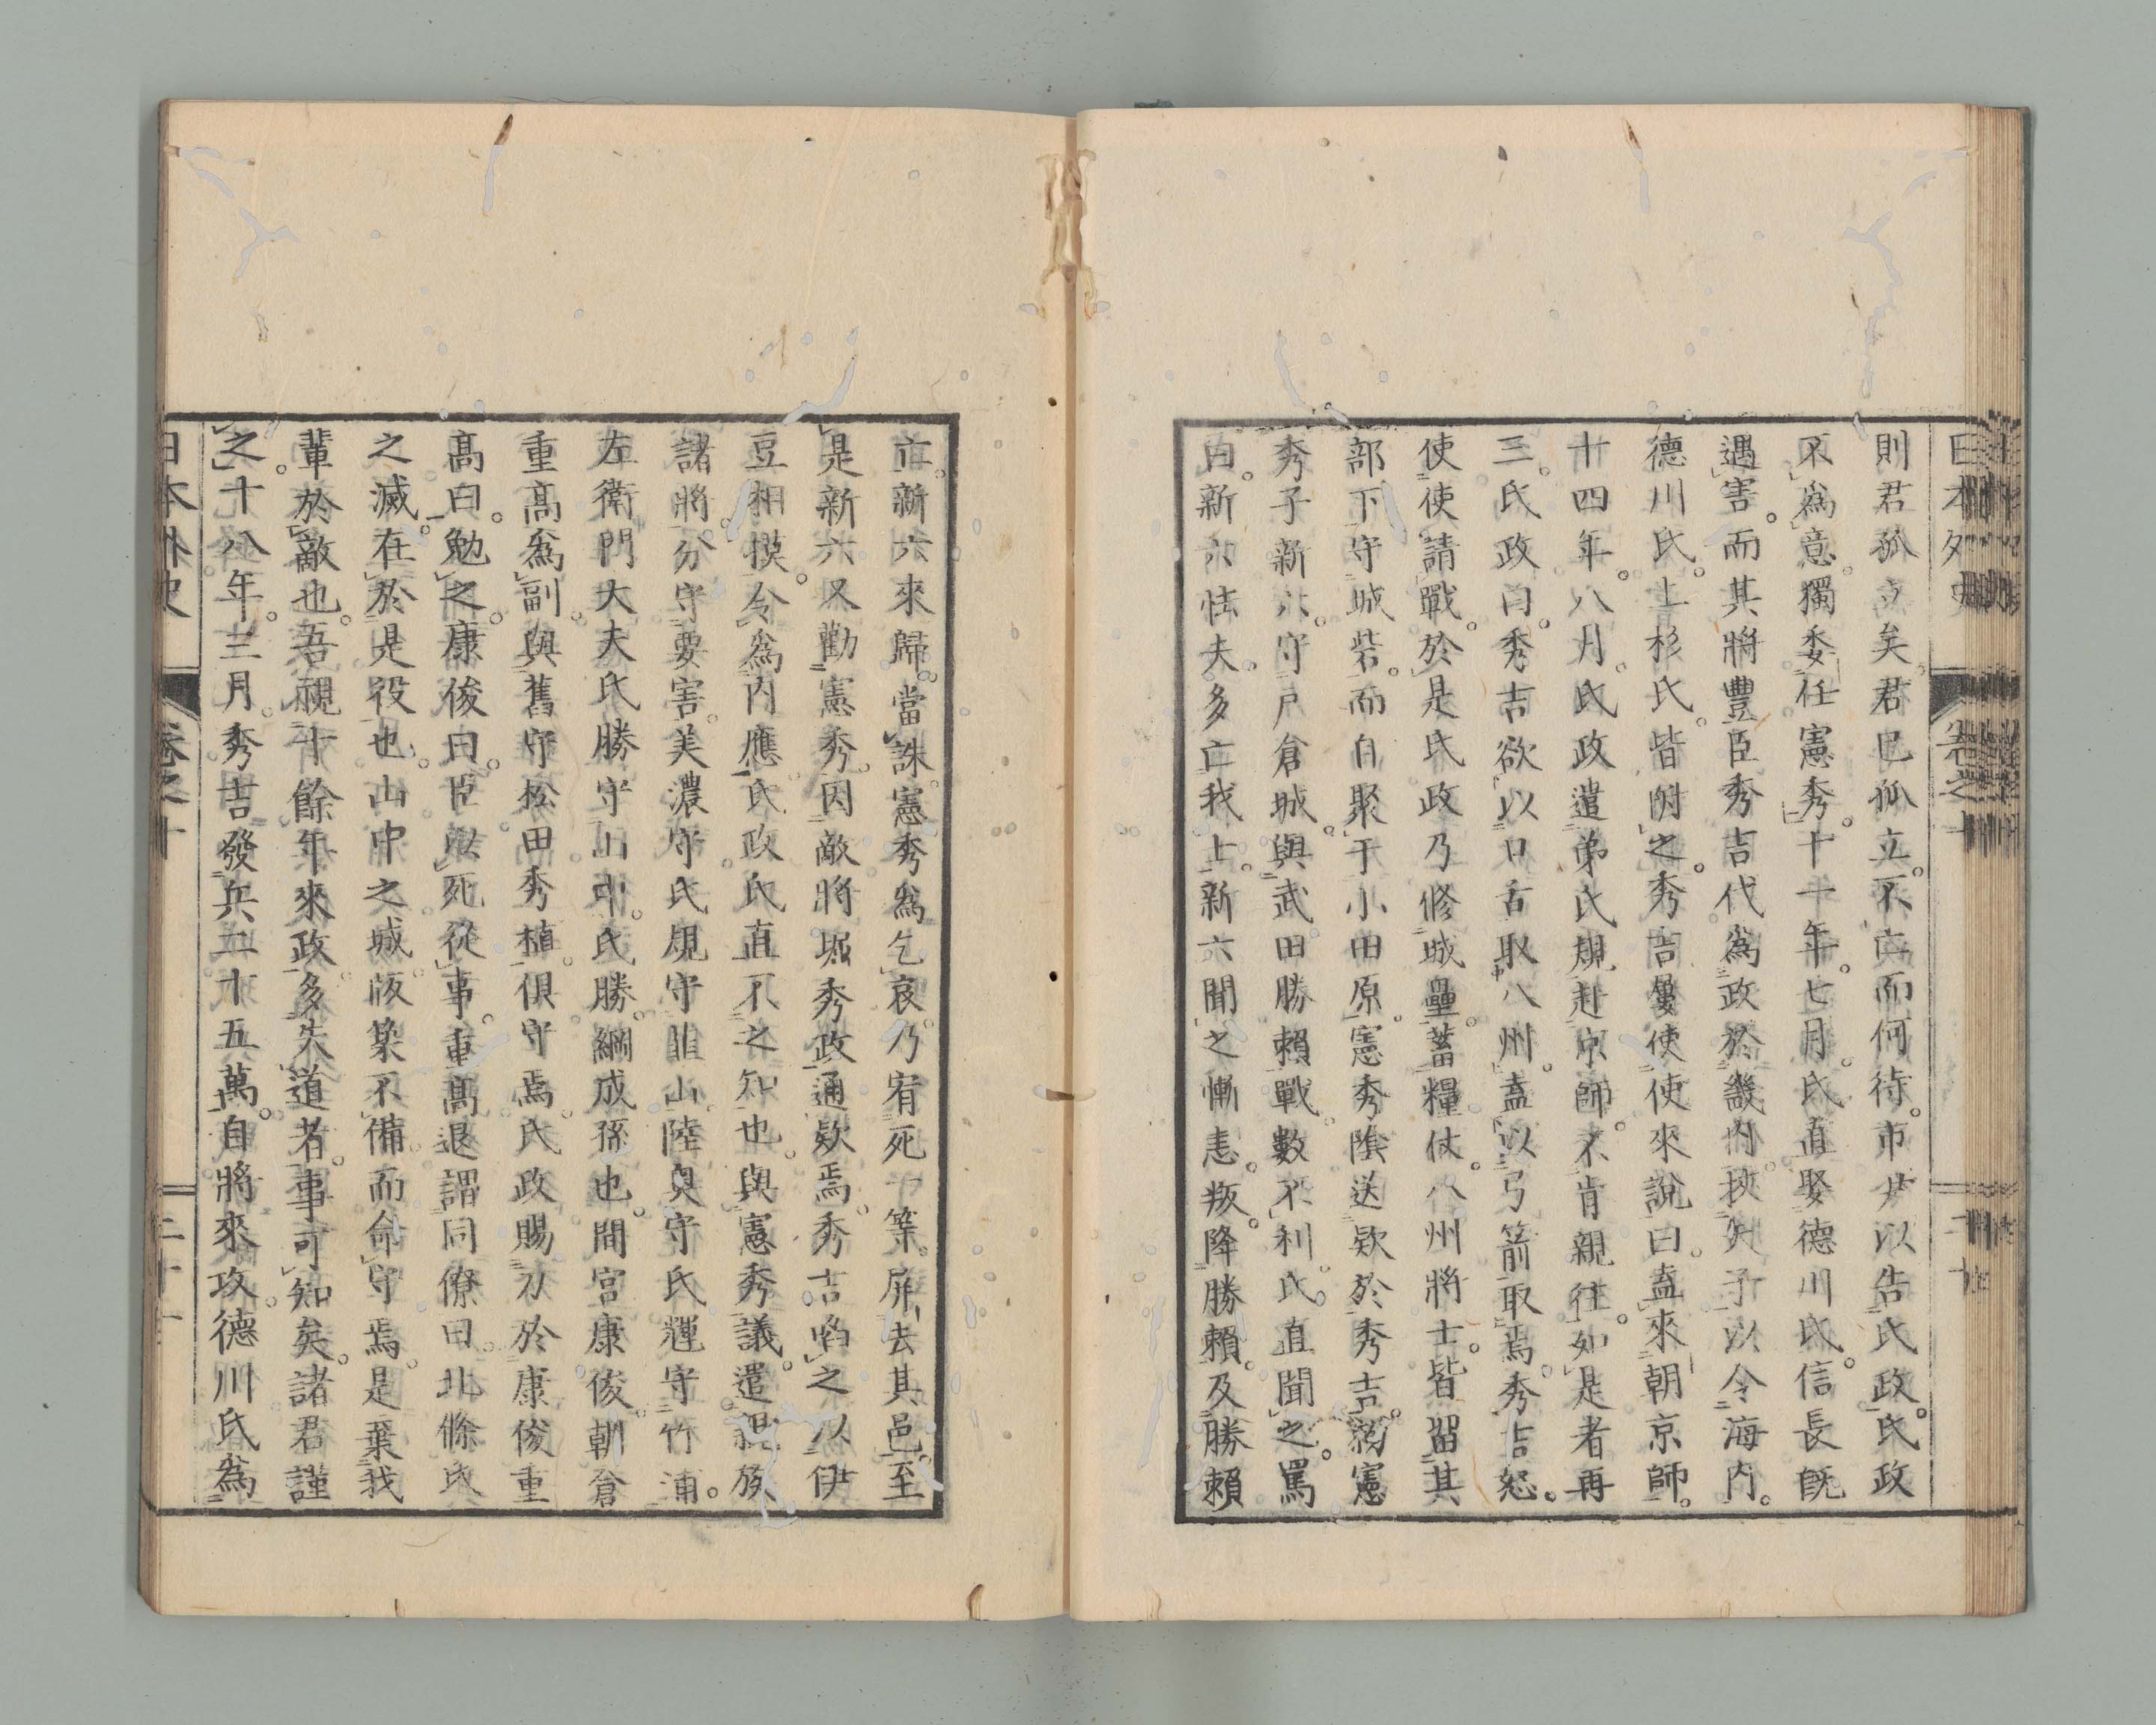 日本外史 卷之十 二十
則君孤立矣。君已孤立。不亡而何待。市廿以告氏政。氏政
不爲意。獨委任憲秀。十一年。七月。氏直娶德川氏。信長既
遇害。而其將豐臣秀吉代爲政於畿内。挾天子以令海内。
德川氏。上杉氏。皆附之。秀吉屢使使來說曰。盍來朝京師。
十四年。八月。氏政遣弟氏規赴京師。不肯親往。如是者再
三。氏政曰。秀吉欲以口舌取八州。盍以弓箭取焉。秀吉怒。
使使請戰。於是氏政乃修城壘。蓄糧仗。八州將士。皆留其
部下守城砦。而自聚于小田原。憲秀陰送欵於秀吉。初憲
秀子新六。守戶倉城。與武田勝賴戰。數不利。氏直聞之。罵
曰。新六怯夫。多亡我士。新六聞之慚恚。叛降勝賴。及勝賴
亡。新六來歸。當誅。憲秀爲乞哀。乃宥死一等。屏去其邑。至
是新六又勸憲秀。因敵將堀秀政通欵焉。秀吉啗之以伊
豆相摸。令爲内應。氏政氏直不之知也。與憲秀議。遣親族
諸將。分守要害。美濃守氏規守韮山。陸奥守氏輝守竹浦。
左衛門大夫氏勝守山中。氏勝。綱成孫也。間宮康俊。朝倉
重高爲副。與舊守松田秀植。俱守焉。氏政賜刀於康俊重
高曰。勉之。康俊曰。臣以死從事。重高退謂同僚曰。北條氏
之滅。在於是役也。山中之城。版築不備。而命守焉。是棄我
輩於敵也。吾視十餘年來政。多失道者。事可知矣。諸君謹
之。十八年。三月。秀吉發兵二十五萬。自將來攻。德川氏爲
日本外史 卷之十 二十一